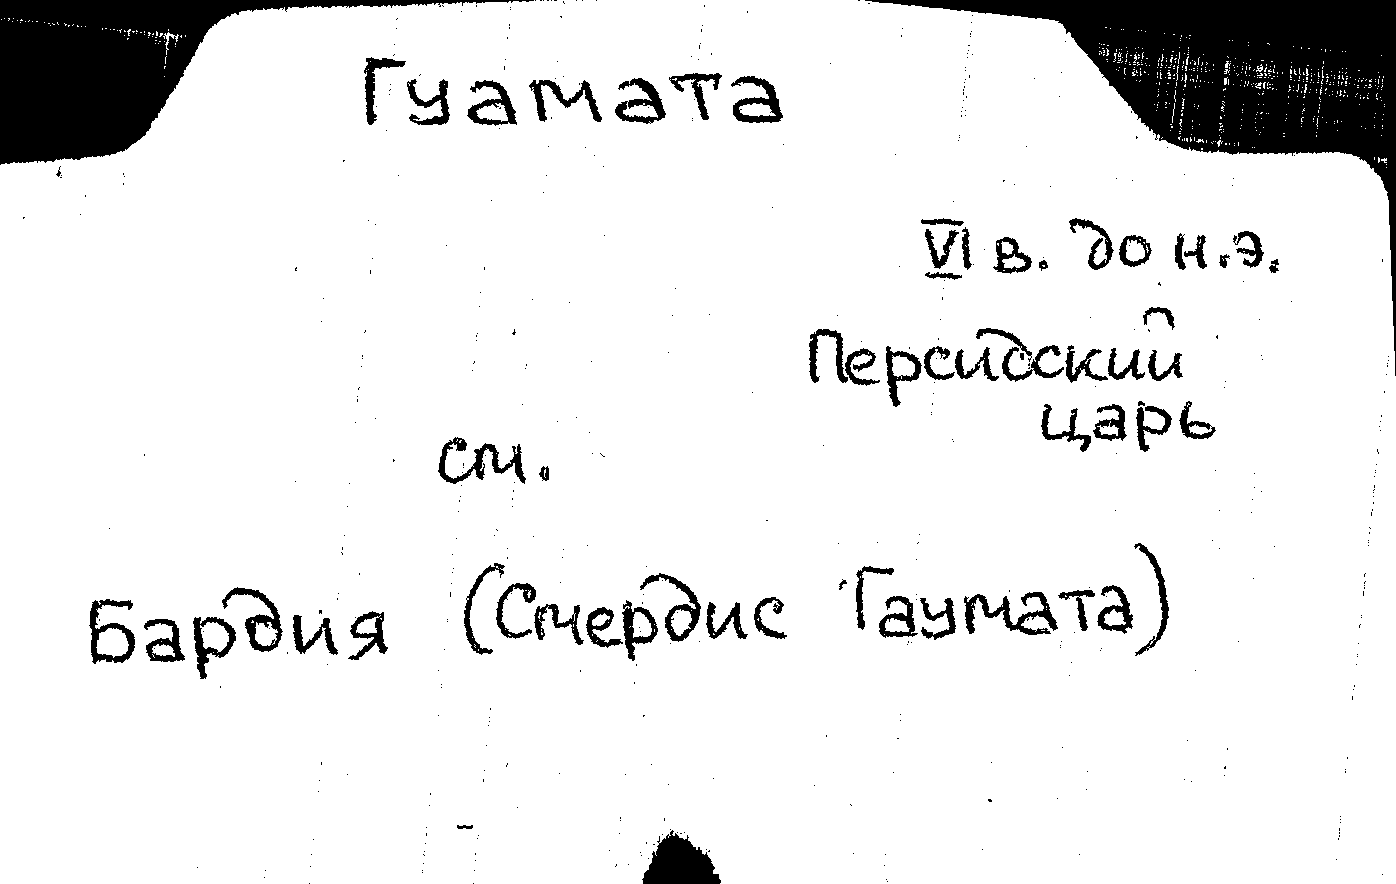 Гуамата
VI в. до н.э.
Персидский
царь
см.
Бардия (Смердис Гаумата)